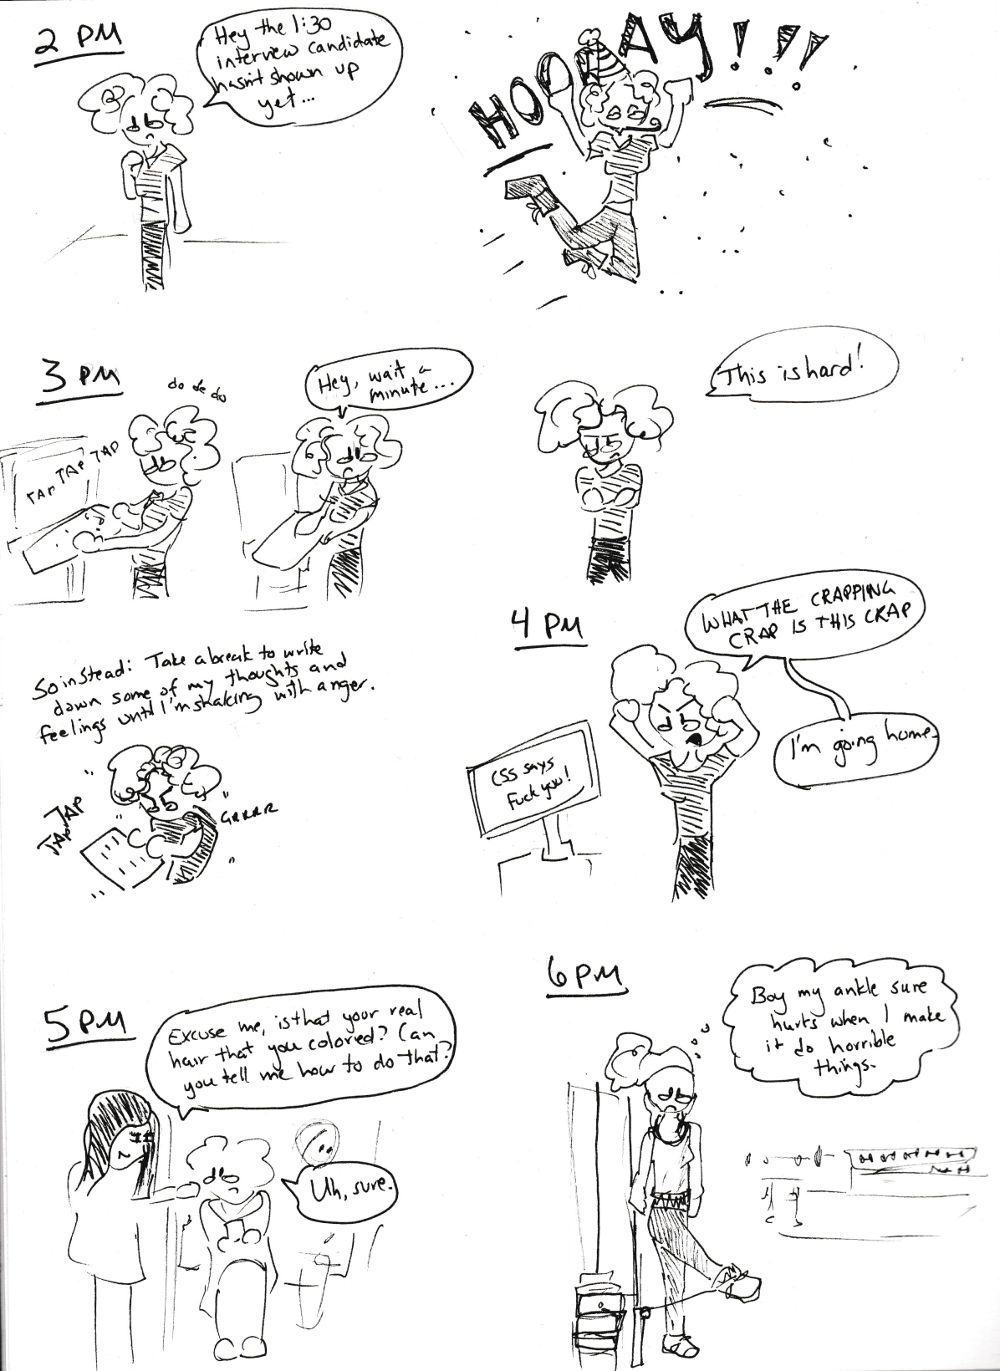 2 PM
Hey the 1:30
interview candidate
hasn't shown up
yet...
HOORAY!!!
3 PM
do de do
TAP TAP TAP
Hey, wait a
minute...
This is hard!
So instead: Take a break to write
down some of my thoughts and
feelings until I'm shaking with anger.
TAP TAP
GRRRR
4 PM
WHAT THE CRAPPING
CRAP IS THIS CRAP
I'm going home.
CSS says
Fuck you!
5 PM
Excuse me, is that your real
hair that you colored? Can
you tell me how to do that?
Uh, sure.
6 PM
Boy my ankle sure
hurts when I make
it do horrible
things.